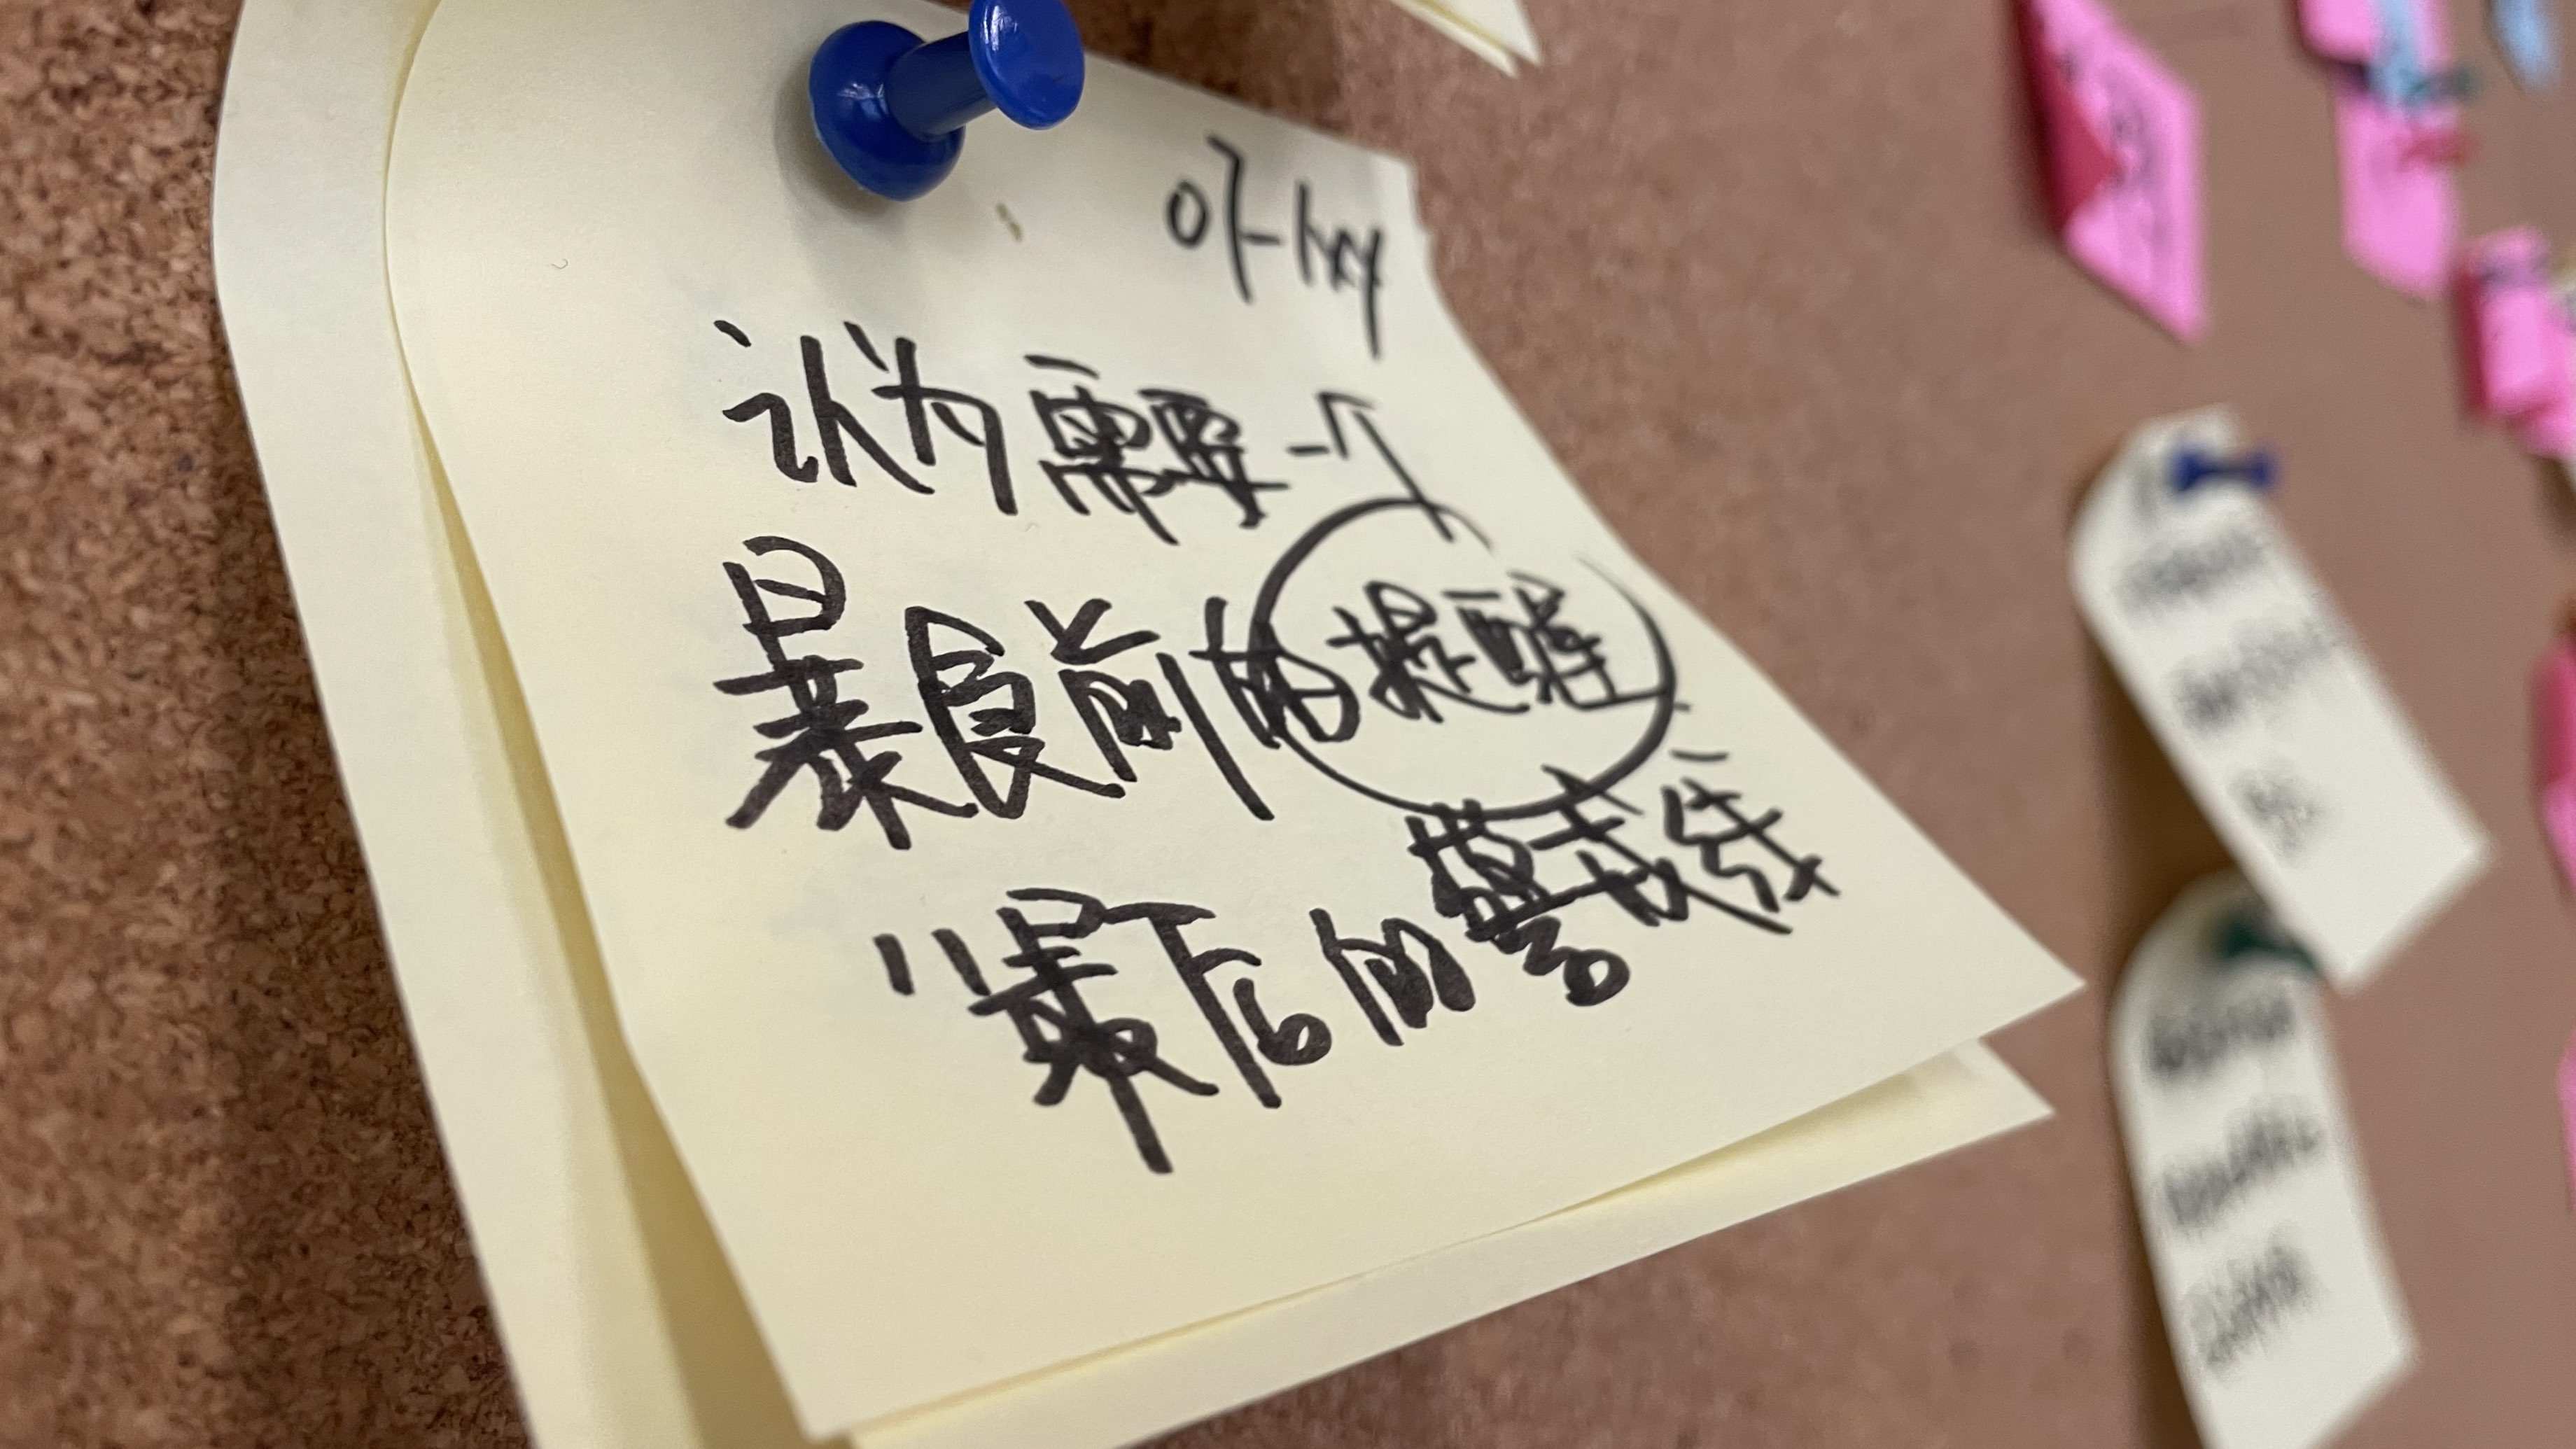 07-hxy
认为需要一个
暴食前的提醒
"最后的警戒线"